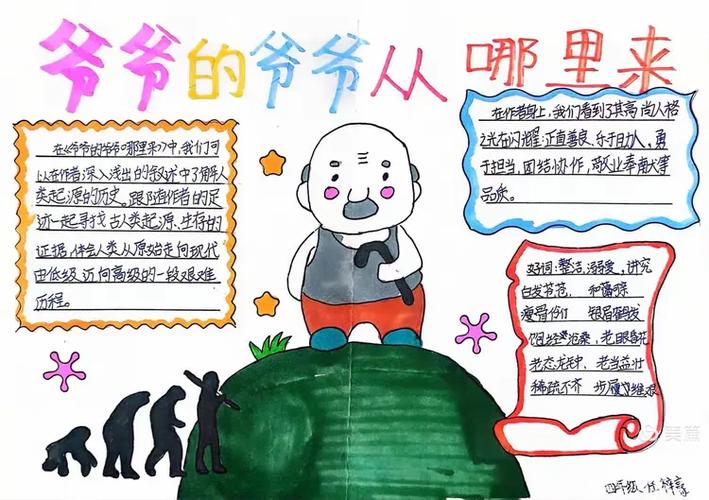 爷爷的爷爷从哪里来
在《爷爷的爷爷哪里来》中,我们可
以在作者深入浅出的叙述中了解人
类起源的历史。跟随作者的足
迹一起寻找古人类起源、生存的
证据,体会人类从原始走向现代
由低级迈向高级的一段艰难
历程。
在作者身上,我们看到了其高尚人格
之光在闪耀:正直善良、乐于助人、勇
于担当、团结协作,敬业奉献等
品质。
好词:整洁、溺爱、讲究
白发苍苍、和蔼可亲
瘦骨伶仃 银眉鹤发
饱经沧桑、老眼昏花
老态龙钟、老当益壮
稀疏不齐 步履维艰
美篇
四年级